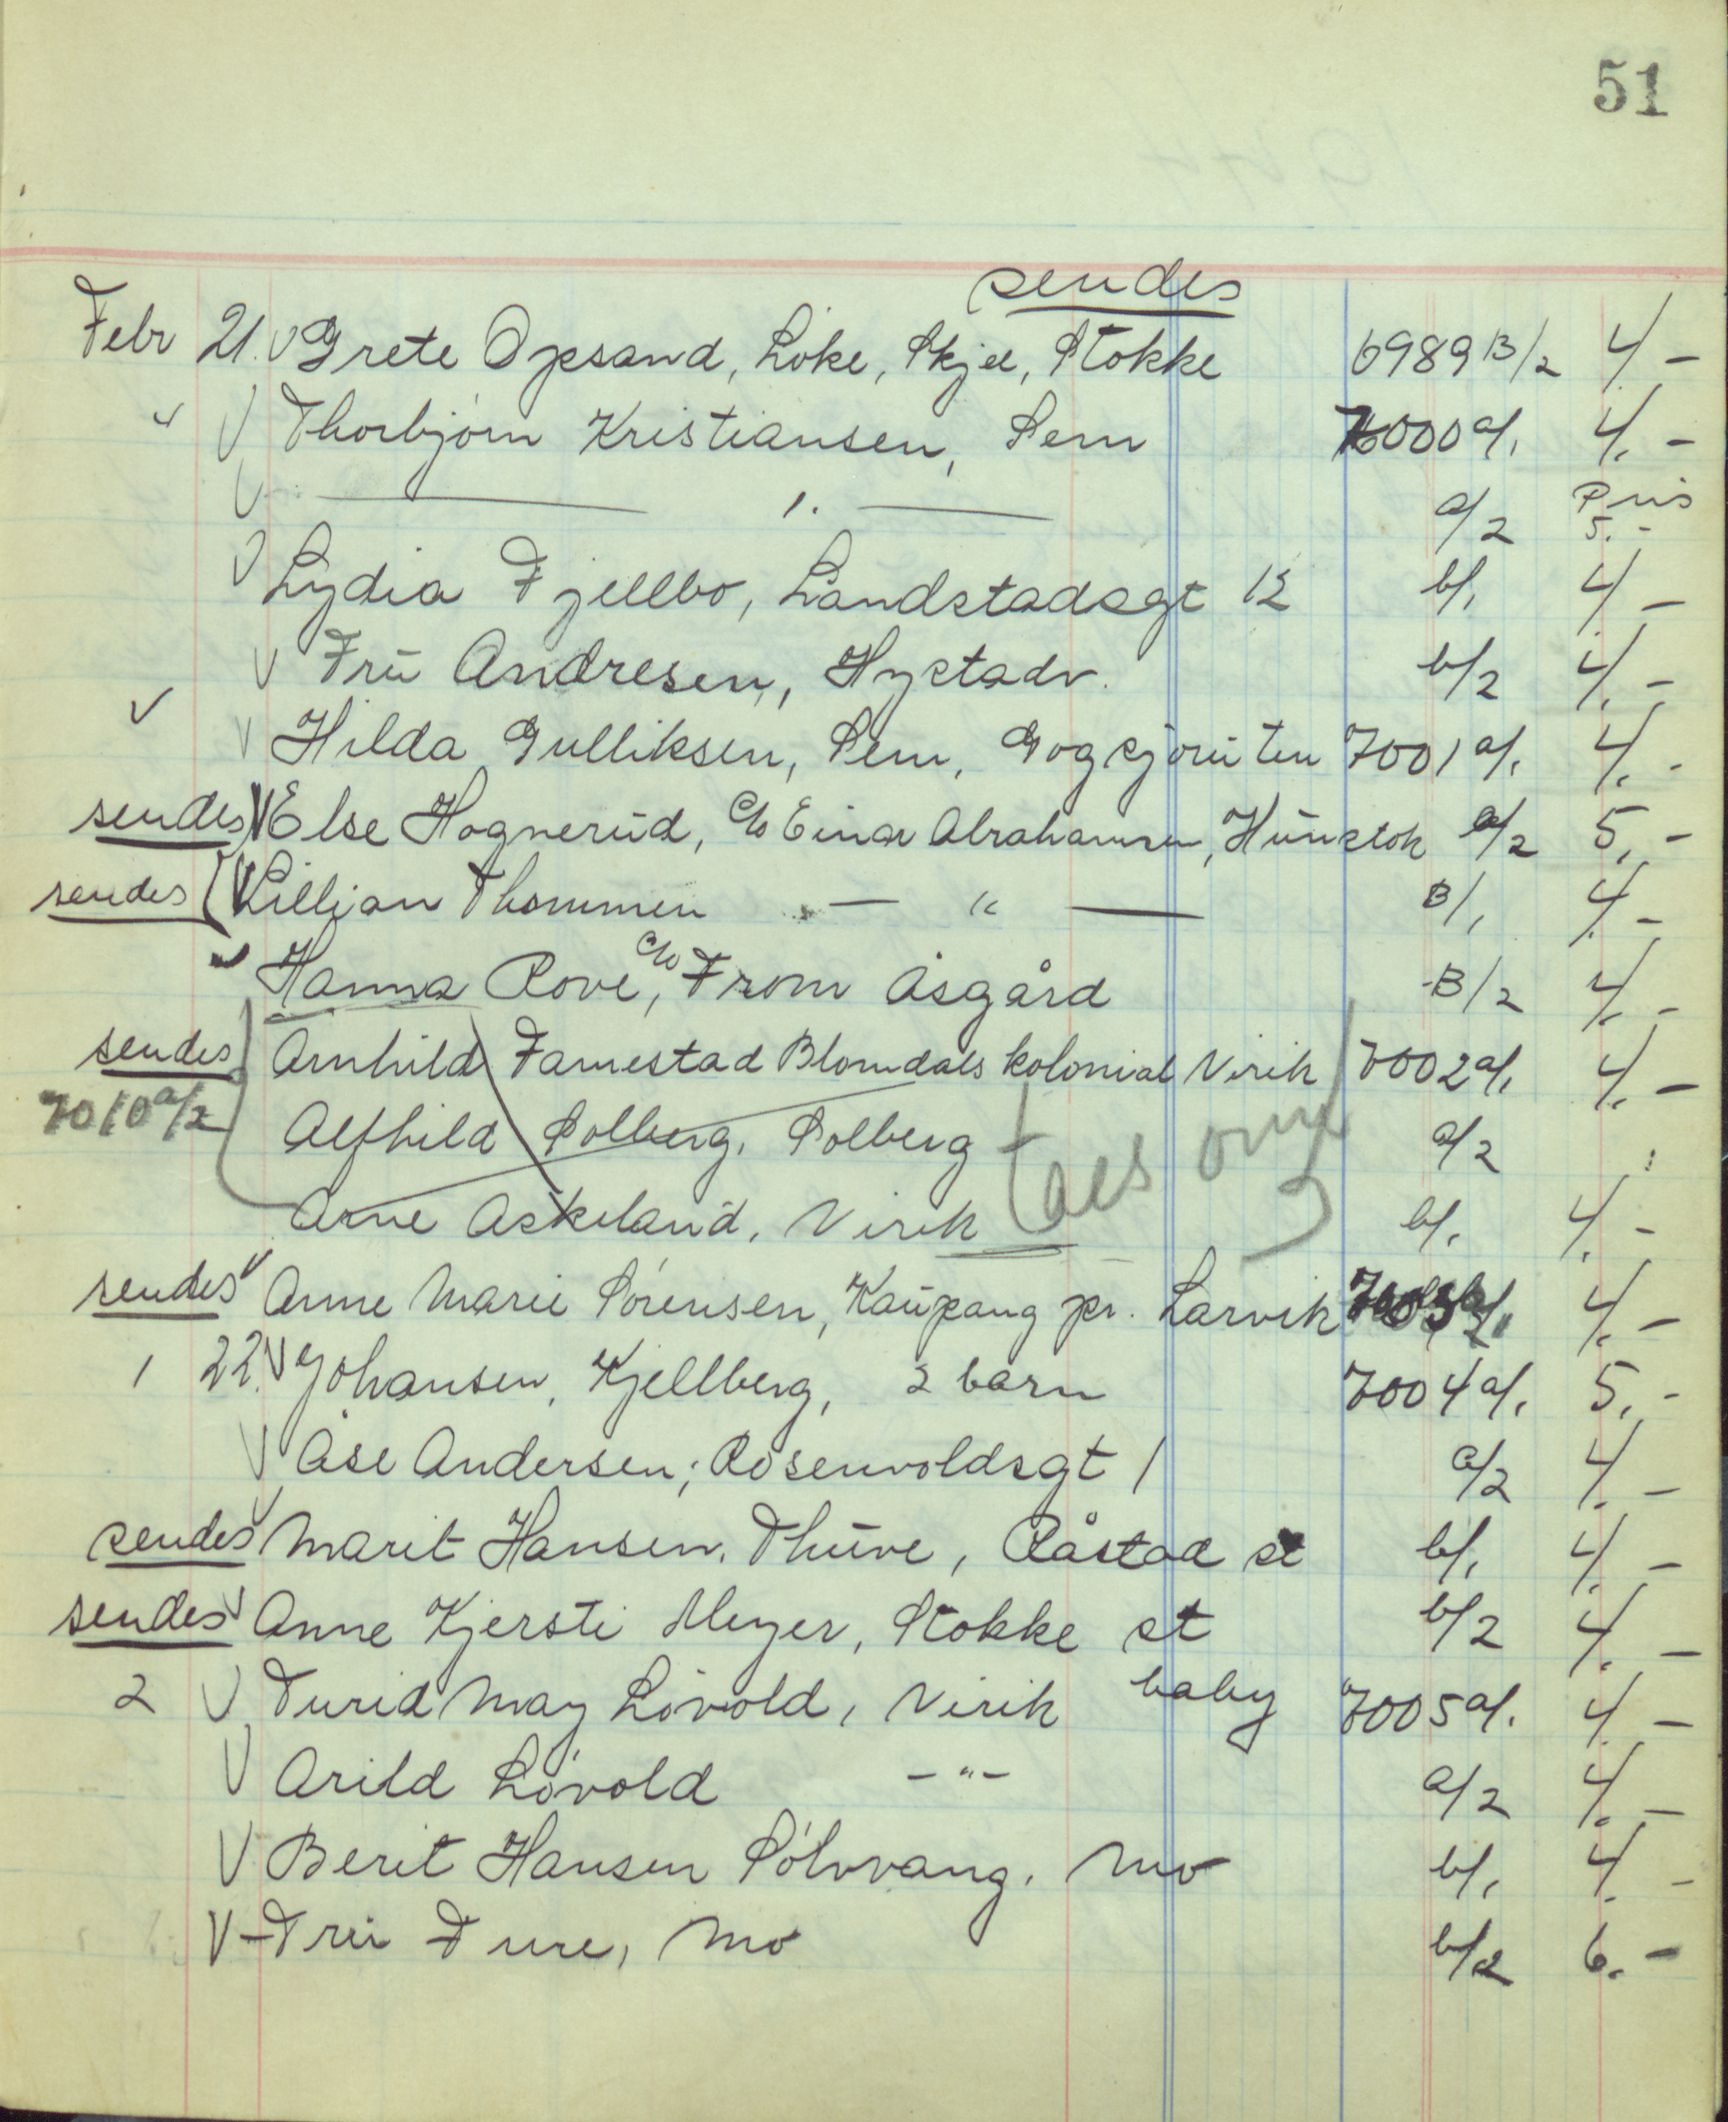 51
sendes
Febr 21. V Grete Opsand, Løke, Skjee, Stokke 6989 B/2 4.-
" V Thorbjørn Kristiansen, Sem 7000 a/1 4.-
V — " — a/2 Pris 5.-
V Lydia Fjellbo, Landstadsgt 12 b/1 4.-
V Frū Andresen, Hystadv. b/2 4.-
V V Hilda Gulliksen, Sem, 7001 a/1 4.-
sendes V Else Hognerūd, c/o Einar Abrahamsen, Hūnstok a/2 5.-
sendes V Lillian Thommen — " — B/1 4.-
V Hanna Rove, c/o From Åsgård B/2 4.-
sendes Arnhild Famestad Blomdals kolonial Virik 7002 a/1 4.-
7010 a/2 Alfhild Solberg, Solberg a/2
taes om
Arne Askeland, Virik b/1 4.-
sendes V Anne Marie Sørensen, Kaūpang pr. Larvik 4.-
1 22. V Johansen, Kjellberg, 2 barn 7004 a/1 5.-
V Åse Andersen, Rosenvoldsgt 1 a/2 4.-
sendes V Marit Hansen, Thūve, Råstad st b/1 4.-
sendes V Anne Kjersti Meyer, Stokke st b/2 4.-
2 V Turid May Løvold, Virik baby 7005 a/1 4.-
V Arild Løvold - " - a/2 4.-
V Berit Hansen Sølvvang, Mo b/1 4.-
V Frū Fure, Mo b/2 6.-